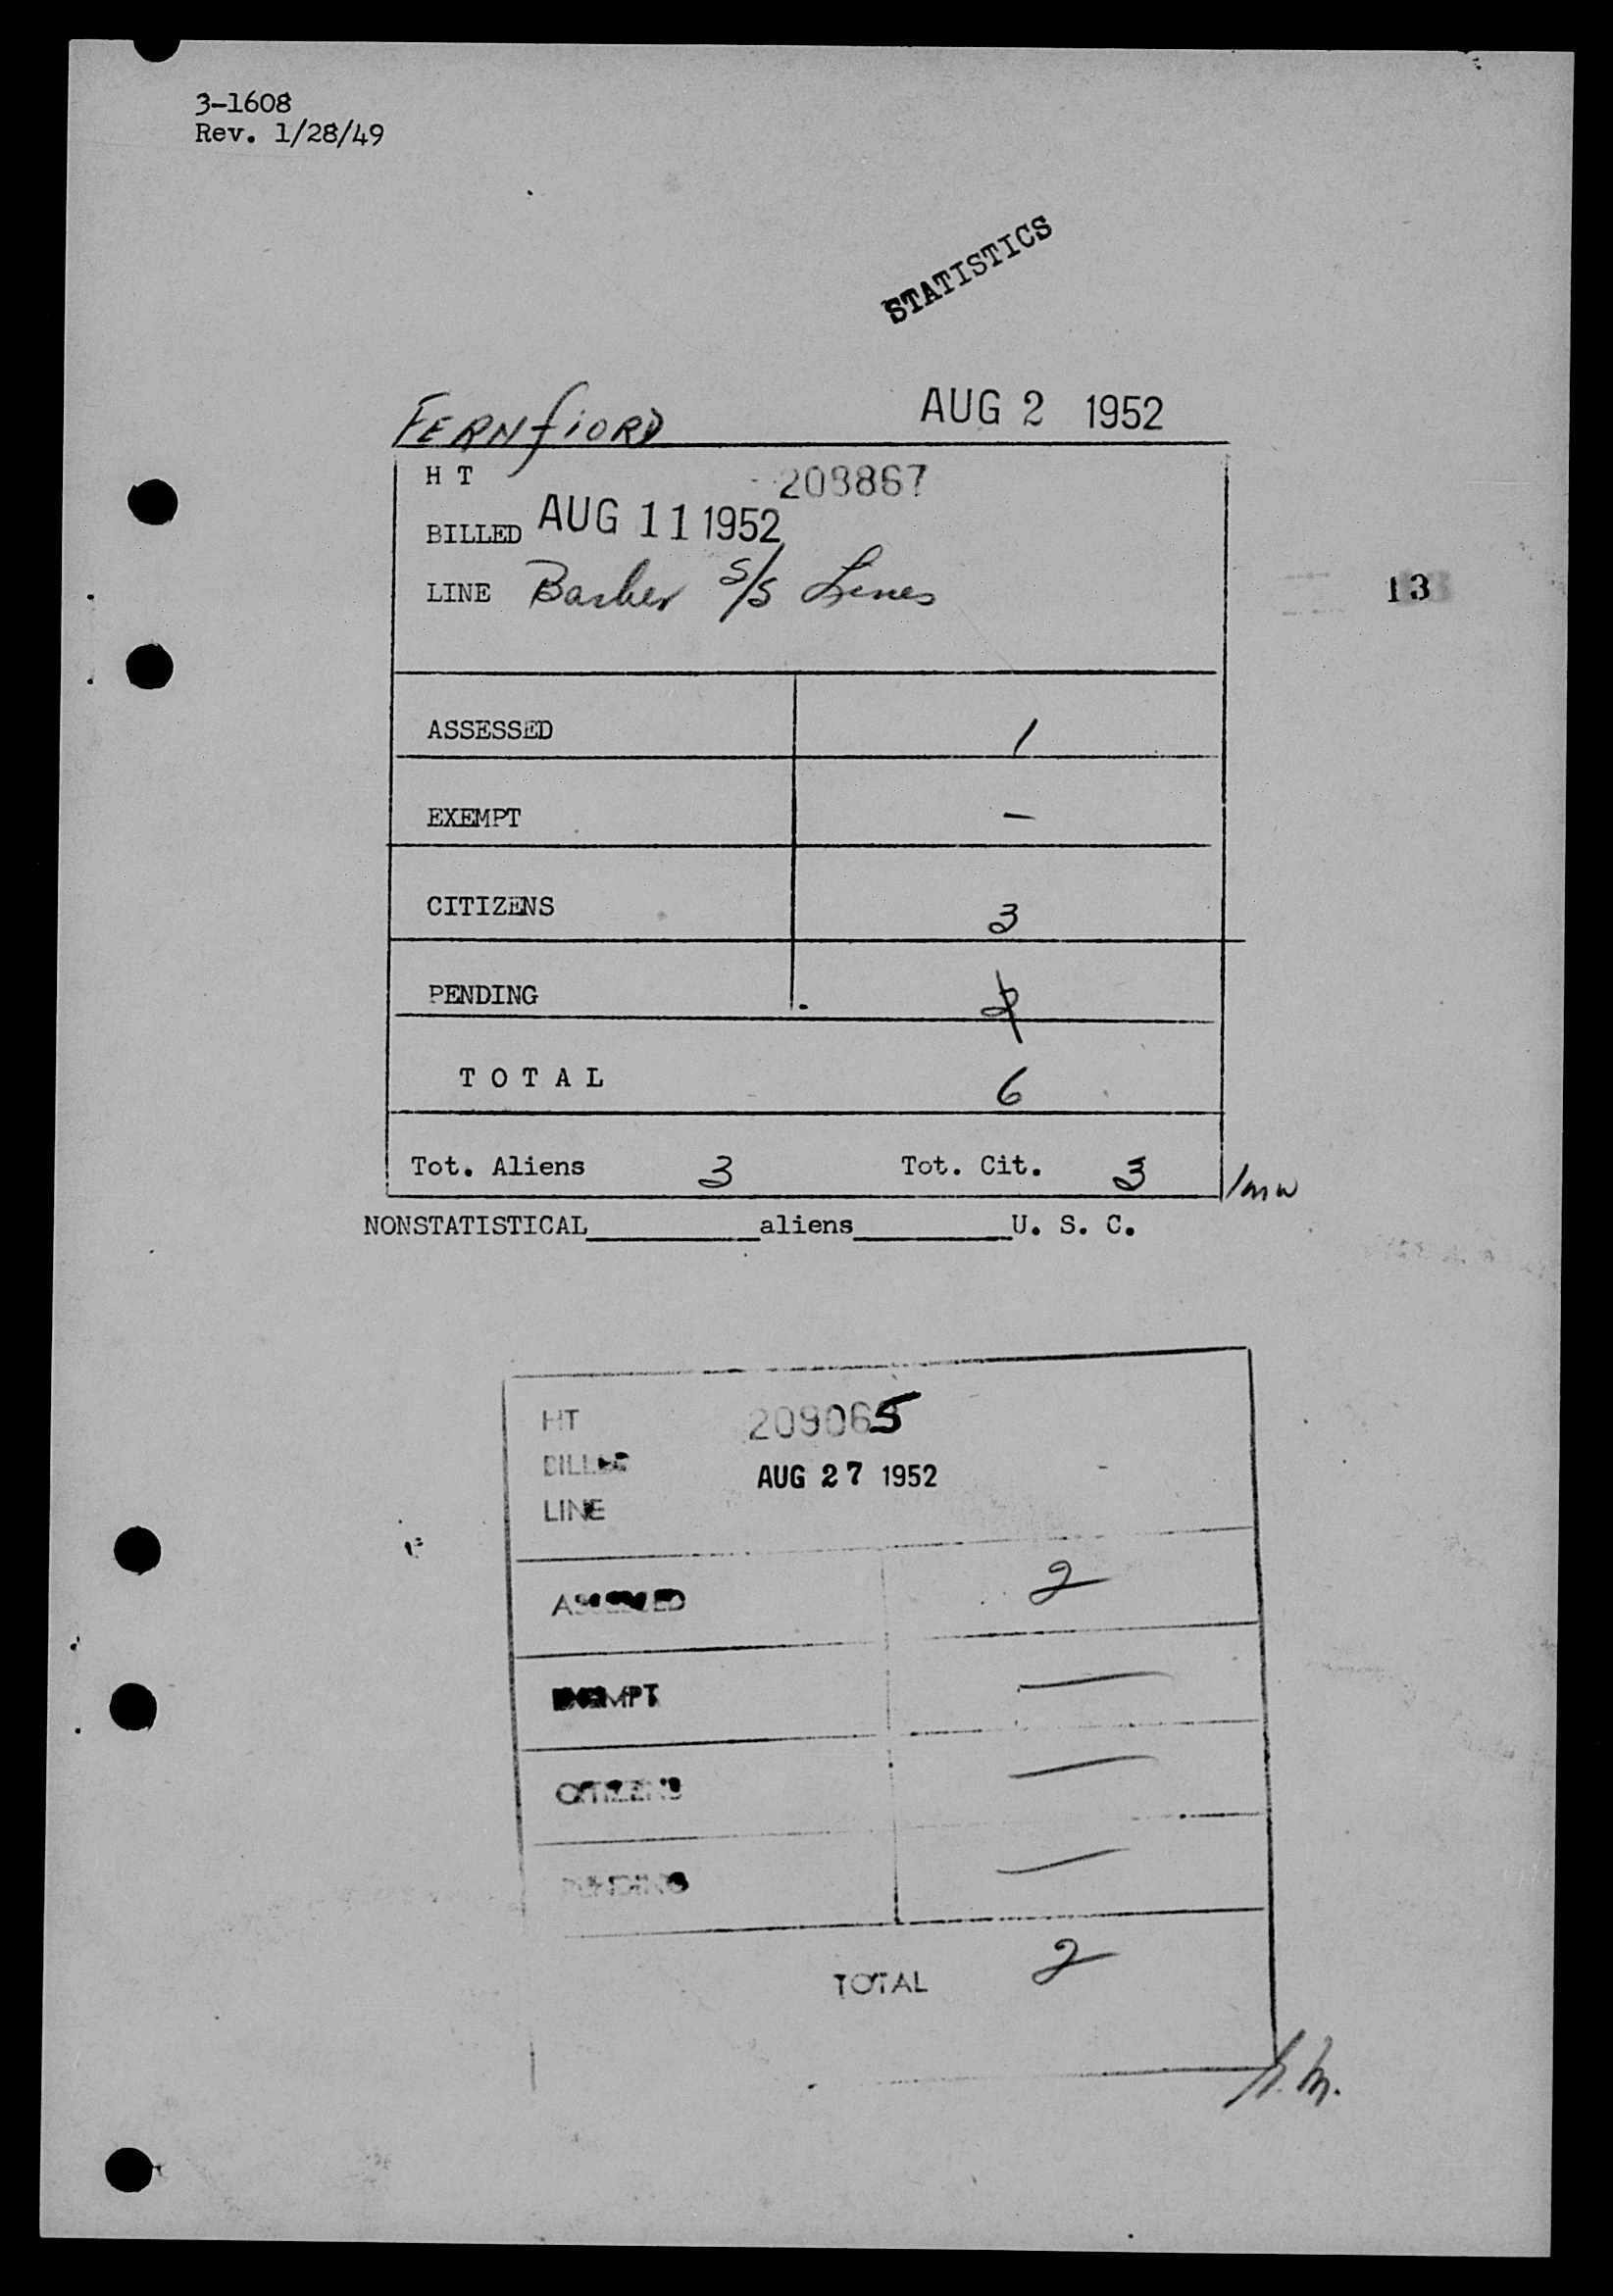 3-1608
Rev. 1/28/49
STATISTICS
FERNfiORD
AUG 2 1952
H T 209867
BILLED AUG 11 1952
LINE Barber S/S Lines
13
ASSESSED 1
EXEMPT —
CITIZENS 3
PENDING 2
TOTAL 6
Tot. Aliens 3 Tot. Cit. 3
NONSTATISTICAL__________aliens__________U. S. C.
HT 209065
BILLED AUG 27 1952
LINE
ASSESSED 2
EXEMPT —
CITIZENS —
PENDING —
TOTAL 2